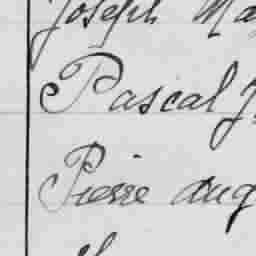 Joseph Ma
Pascal J
Pierre aug